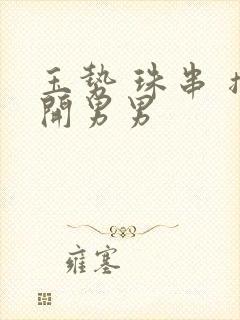 玉势 珠串 扌
開男男
雍塞